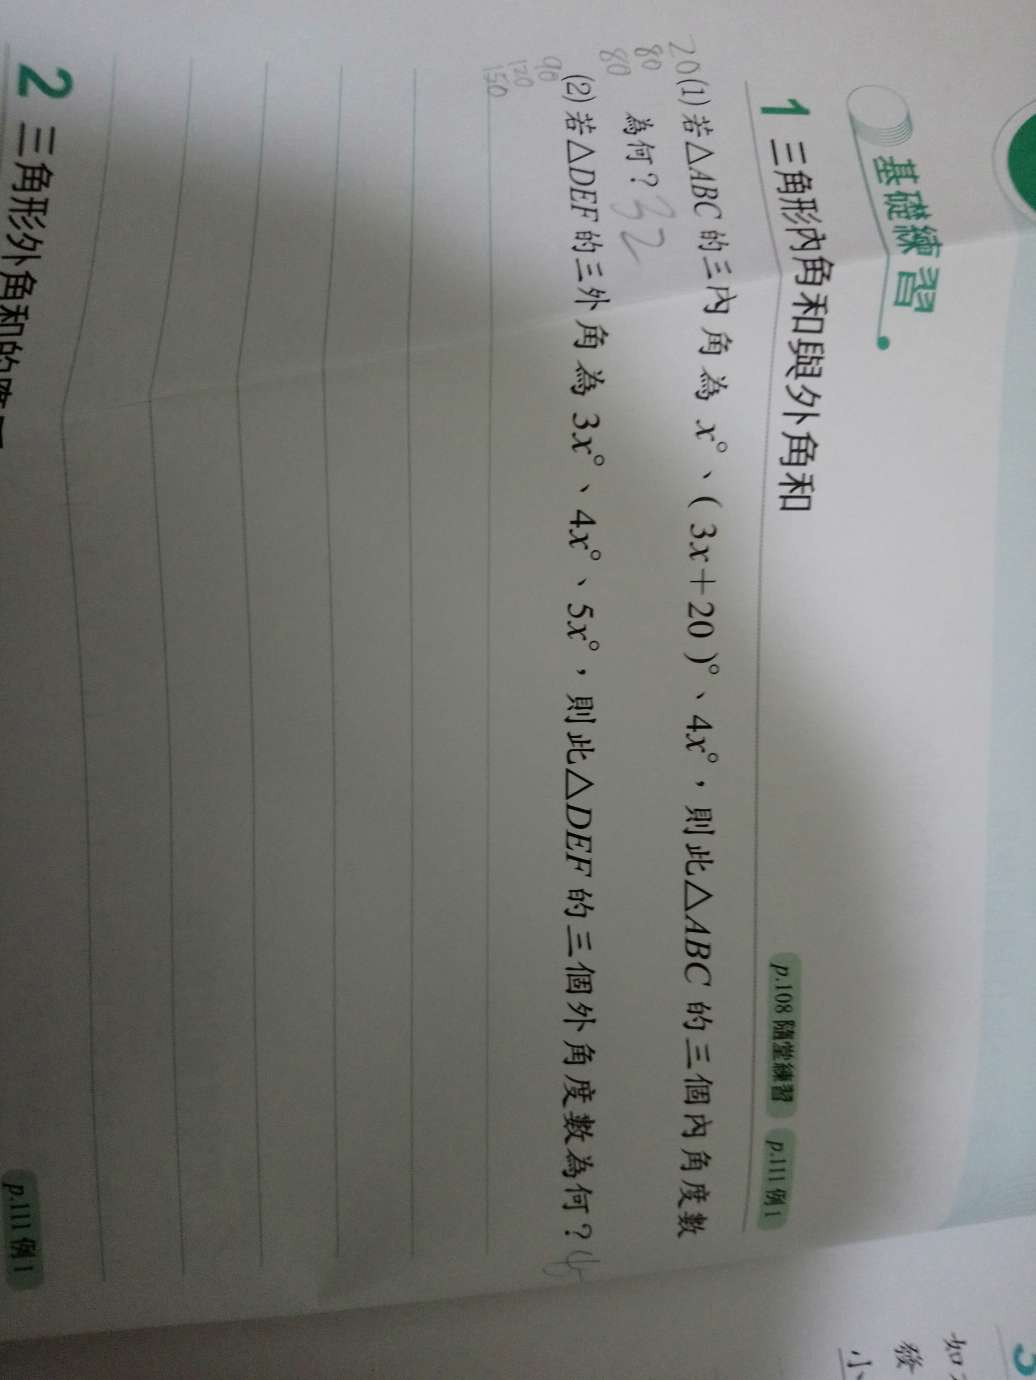 基礎練習
1 三角形內角和與外角和
p.108 隨堂練習 p.111 例1
20 (1) 若△ABC 的三內角為 x°、( 3x+20 )°、4x°,則此△ABC 的三個內角度數
80 為何?32
80
(2) 若△DEF 的三外角為 3x°、4x°、5x°,則此△DEF 的三個外角度數為何?
90
120
150
2 三角形外角和的
p.111 例1
如
發
小